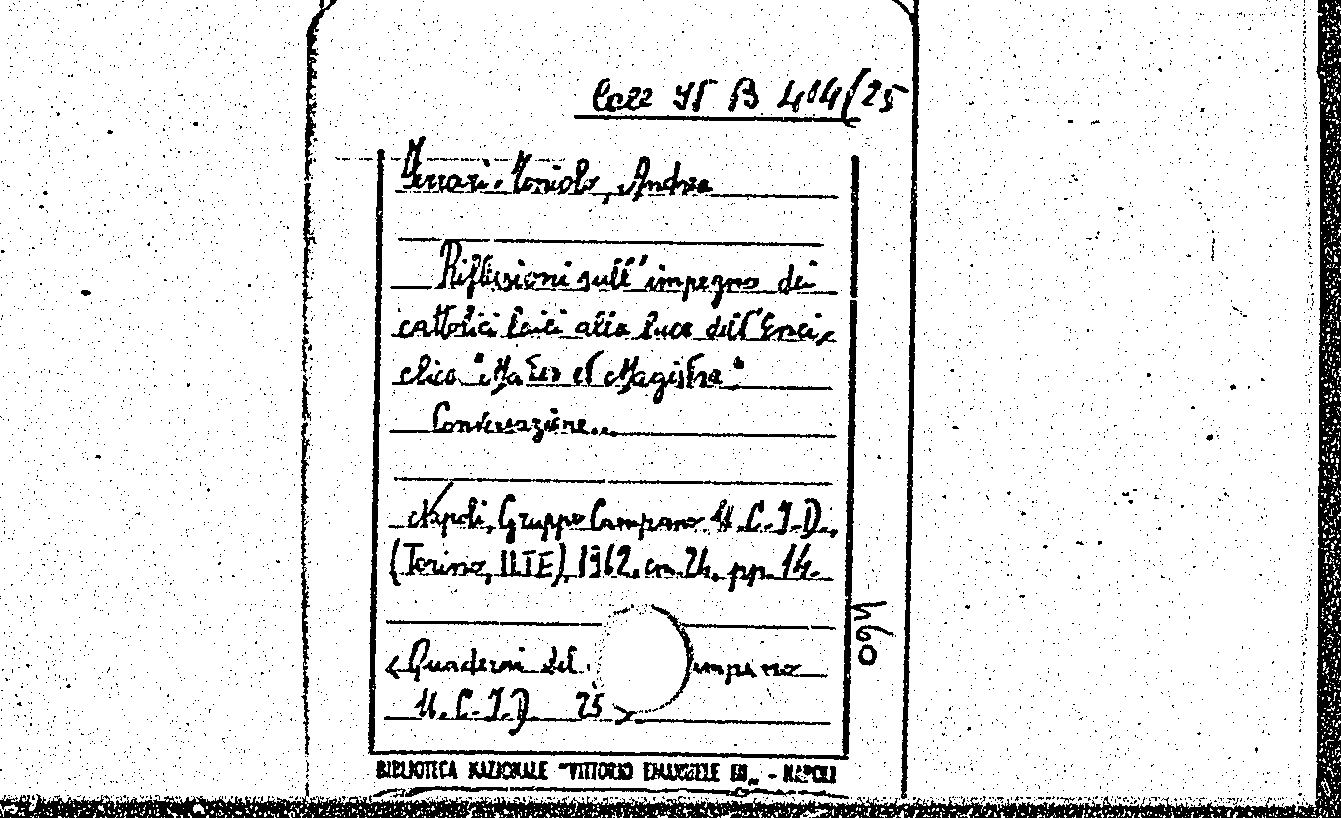 B 404/25
Ferrari-Toniolo, Andrea
Riflessioni sull'impegno dei
cattolici laici alla luce dell'Enci-
clica "Mater et Magistra"
Conversazione...
Napoli, Gruppo Campano U.C.I.D.,
(Torino, ILTE), 1962, cm. 24, pp. 14.
460
<Quaderni del mpano
U.C.I.D. 25>
BIBLIOTECA NAZIONALE "VITTORIO EMANUELE III" - NAPOLI